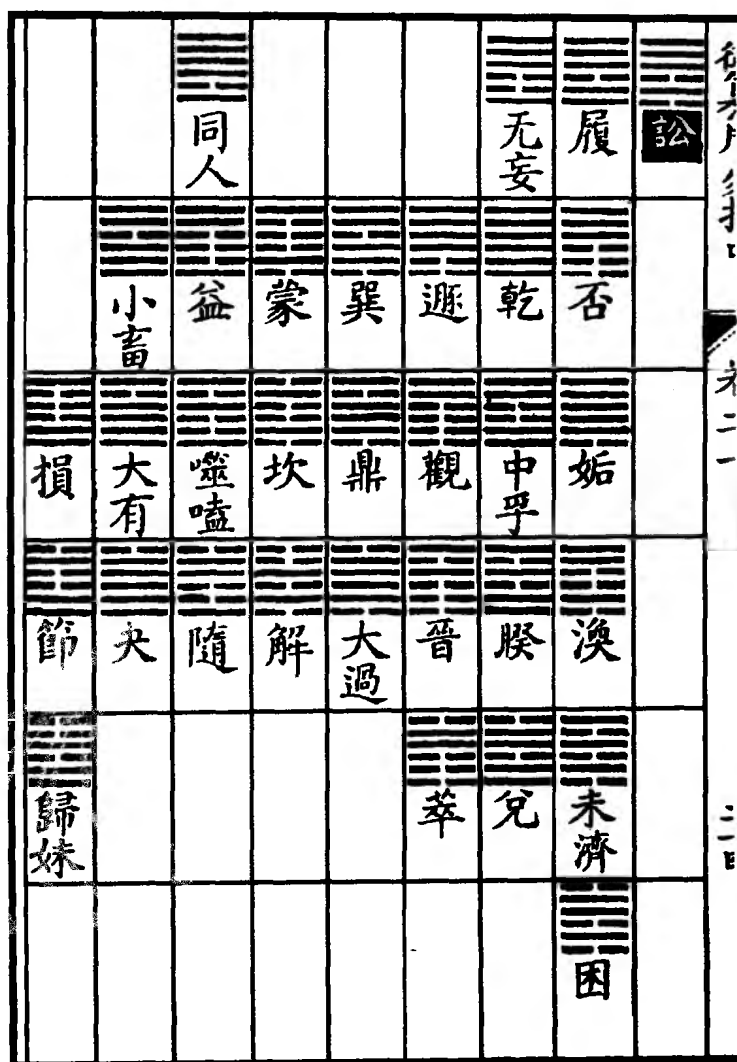 訟
履
否
姤
渙
未濟
困
无妄
乾
中孚
睽
兌
遯
觀
晉
萃
巽
鼎
大過
蒙
坎
解
同人
益
噬嗑
隨
小畜
大有
夬
損
節
歸妹